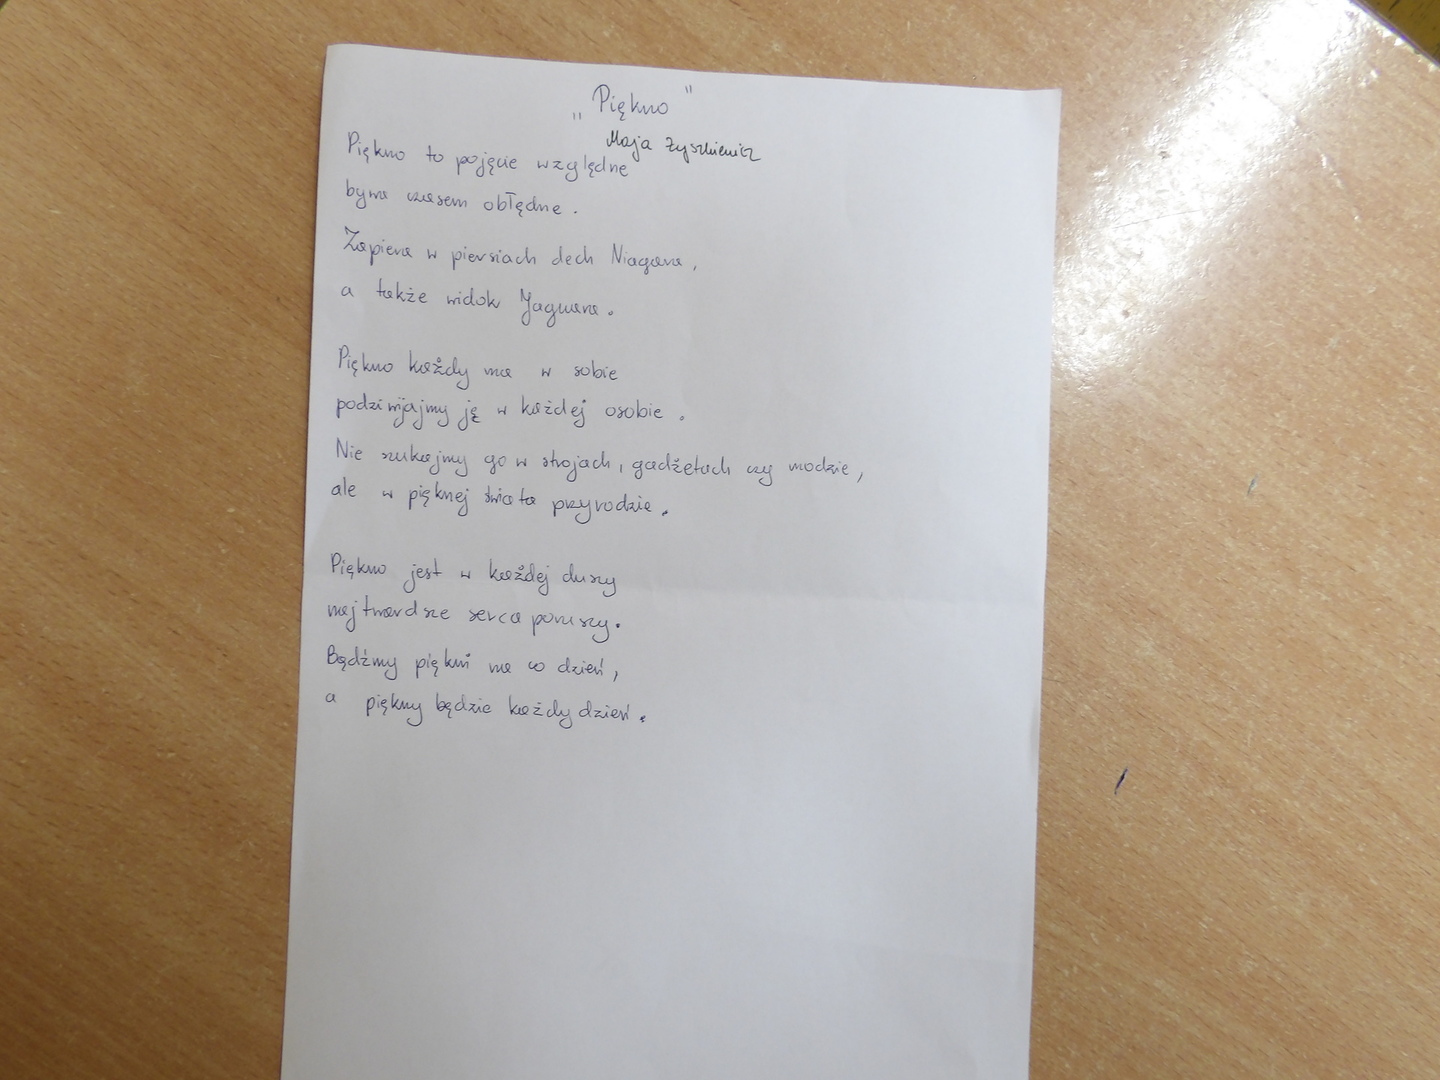 „Piękno"
Maja
Piękno to pojęcie względne
bywa czasem obłędne.
Zapiera w piersiach dech Niagara,
a także widok Jaguara.
Piękno każdy ma w sobie
podziwjajmy ję w każdej osobie.
Nie szukajmy go w strojach, gadżetach czy modzie,
ale w pięknej świata przyrodzie.
Piękno jest w każdej duszy
najtwardsze serca poruszy.
Bądźmy piękni na co dzień,
a piękny będzie każdy dzień.